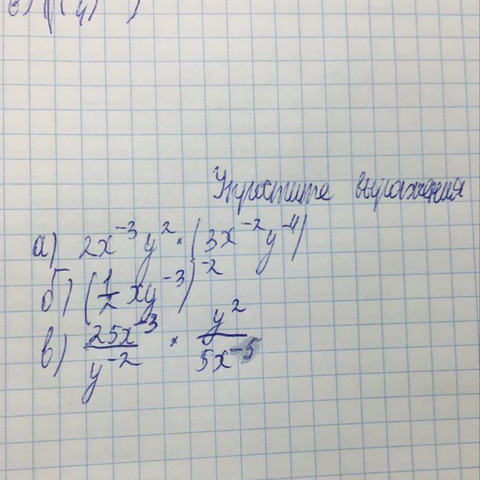 Упростите выражения
а) 2x⁻³y² · (3x⁻²y⁻⁴)
б) (1/2 xy⁻³)⁻²
в) 25x⁻³/y⁻² · y²/5x⁻⁵